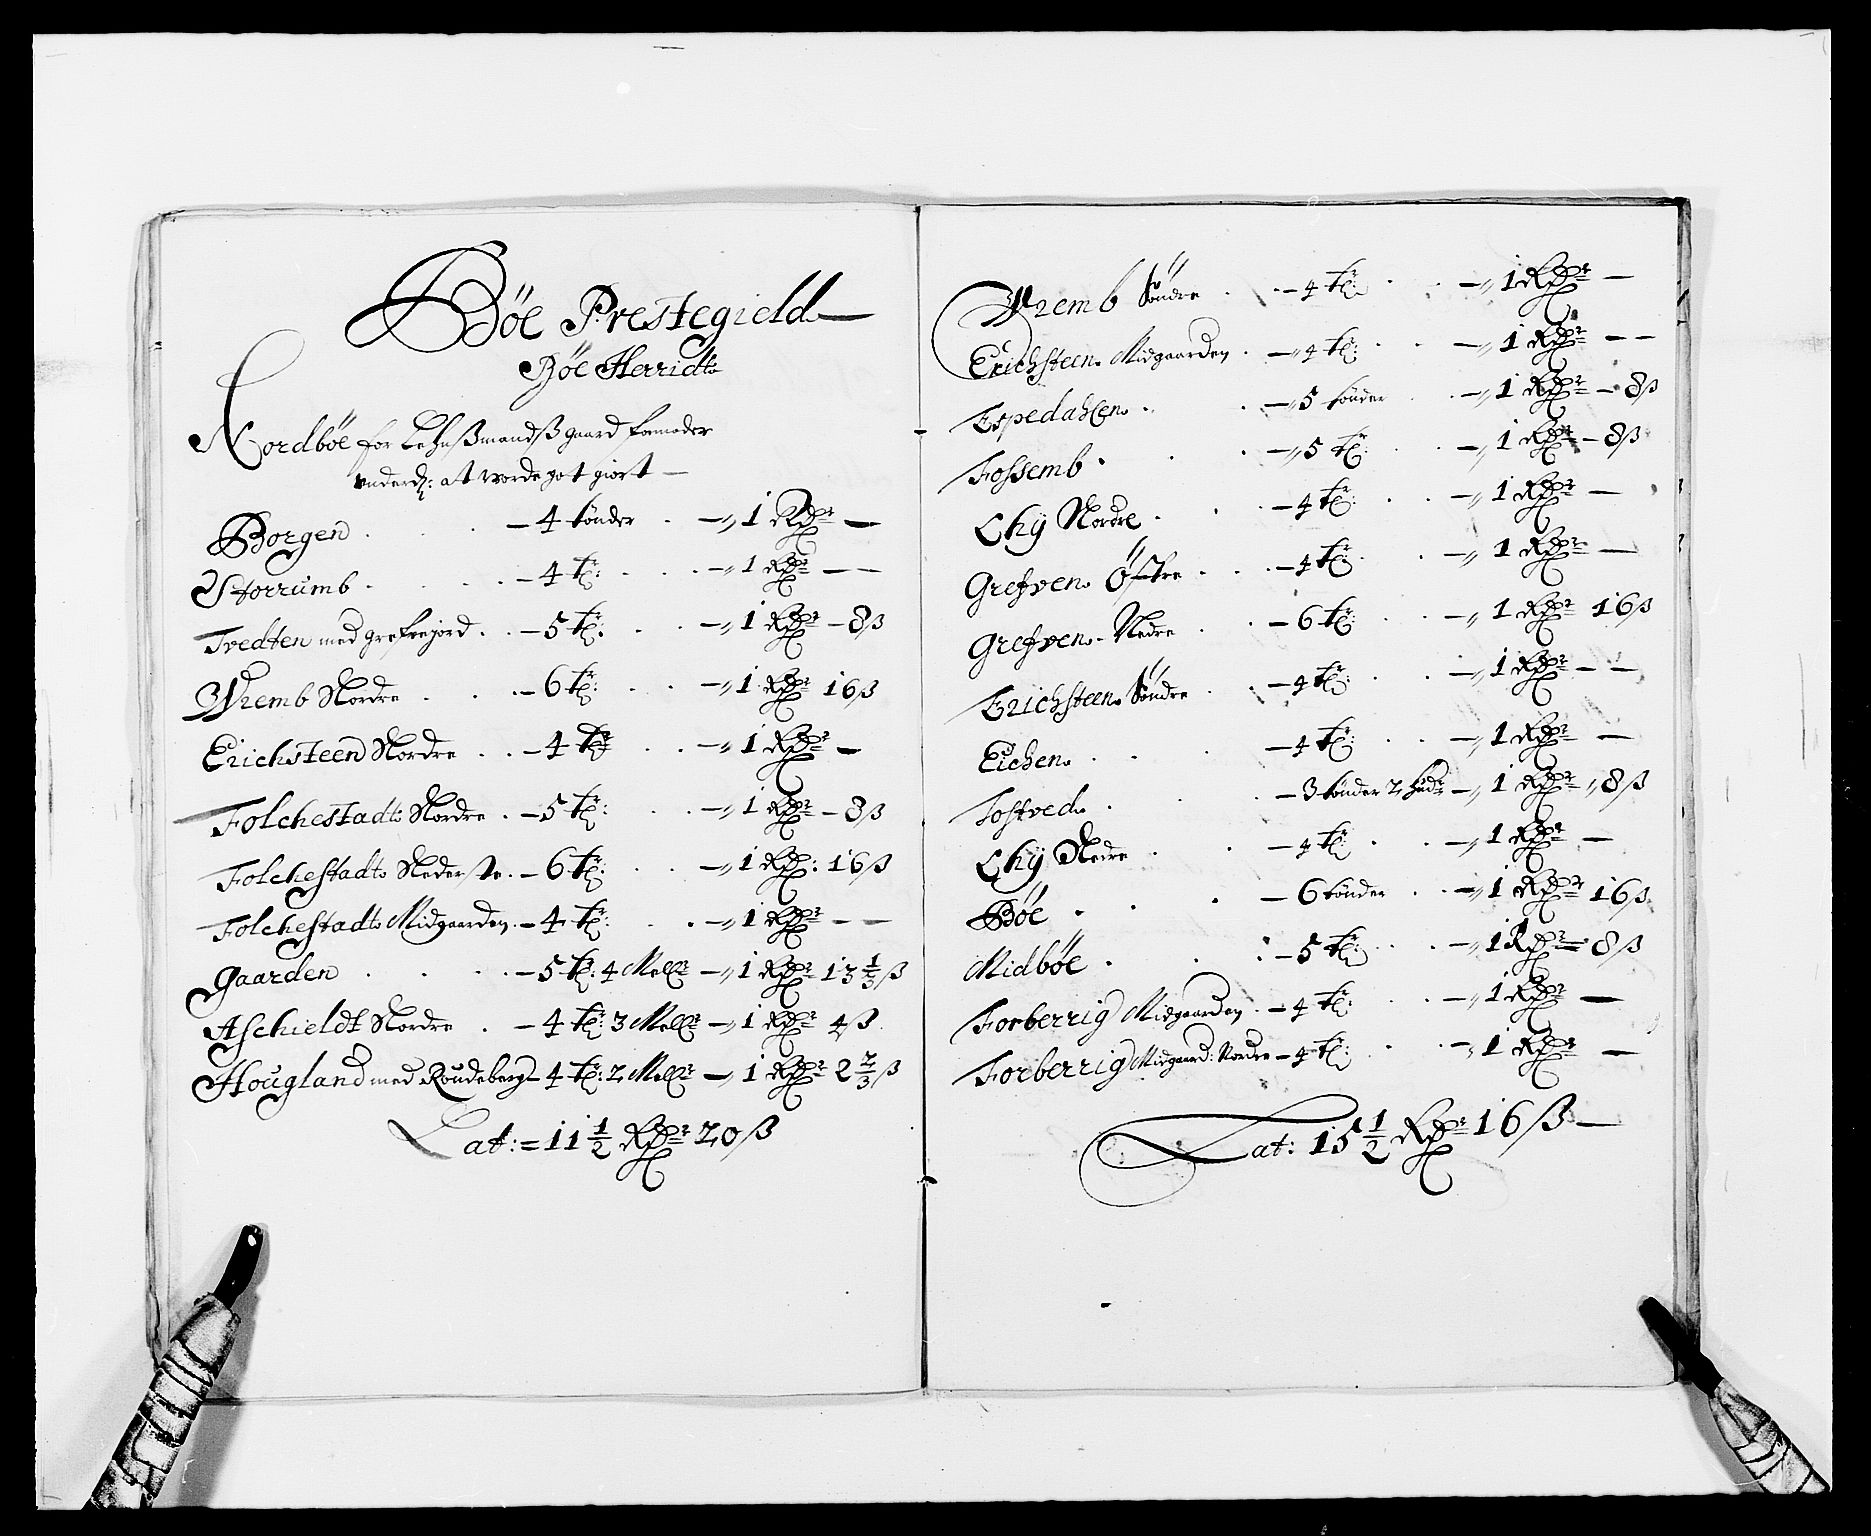 Böe Prestegield
Böe Herridt
Nordböe for Lehnßmandß gaard formoder
underd: at worde got giort —
Borgen . . — 4 tönder . — „ 1 Rdr —
Storrumb . . — 4 tr: . . — „ 1 Rdr — —
Tvedten med grefvejord . . — 5 tr: . — „ 1 Rdr — 8 ß
Wremb Nordre . . — 6 tr: . . — „ 1 Rdr 16 ß
Erichsteen Nordre . . — 4 tr . . — „ 1 Rdr —
Folchestadt Nordre . — 5 tr: . . — „ 1 Rdr — 8 ß
Folchestadt Nederste . — 6 tr: . . — „ 1 Rdr: 16 ß
Folchestadt Midgaarden . — 4 tr: . . — „ 1 Rdr — —
Gaarden . . . — 5 tr: 4 Mellr — „ 1 Rdr 13 1/3 ß
Aschieldt Nordre . — 4 tr: 3 Mellr — „ 1 Rdr 4 ß
Hougland med Roudeberg — 4 tr: 2 Mellr — „ 1 Rdr 2 2/3 ß
Lat: = 11 1/2 Rdr 20 ß
Wremb Söndre . . — 4 tr: . . — „ 1 Rdr —
Erichsteen Midgaarden . — „ 4 tr: . . — „ 1 Rdr — —
Espedahlen . . — „ 5 tönder . — „ 1 Rdr — 8 ß
Fossemb . . . — „ 5 tr: . . — „ 1 Rdr — 8 ß
Lhÿ Nordre . . — 4 tr: . . — „ 1 Rdr —
Grefven Östre . . . — 4 tr: . . — „ 1 Rdr —
Grefven Nedre . . — 6 tr: . . — „ 1 Rdr 16 ß
Erichsteen Söndre . . — 4 tr: . . — „ 1 Rdr — —
Eichen . . . — 4 tr: . . — „ 1 Rdr —
Tostved . . . — 3 tönder 2 hudr — „ 1 Rdr „ 8 ß
Lhÿ Nedre . . — 4 tr: . . — „ 1 Rdr —
Böe . . . — 6 tönder . . — „ 1 Rdr 16 ß
Midböe . . : — 5 tr: . . — „ 1 Rdr = 8 ß
Forberrig Midgaarden . — 4 tr: . . — „ 1 Rdr —
Forberrig Midgaard: Nordre — 4 tr: . . „ 1 Rdr —
Lat: 15 1/2 Rdr 16 ß —